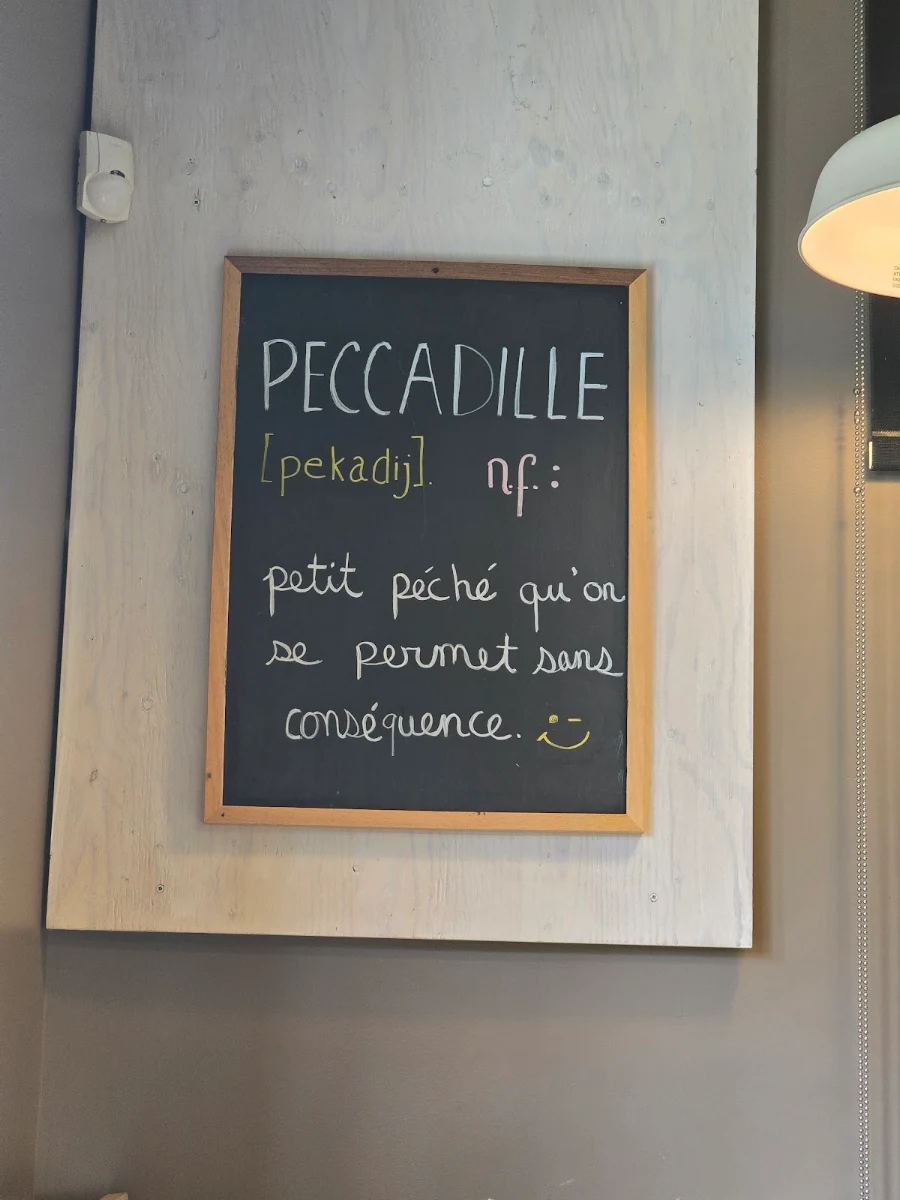 PECCADILLE
[pekadij]. n.f. :
petit péché qu'on
se permet sans
conséquence.